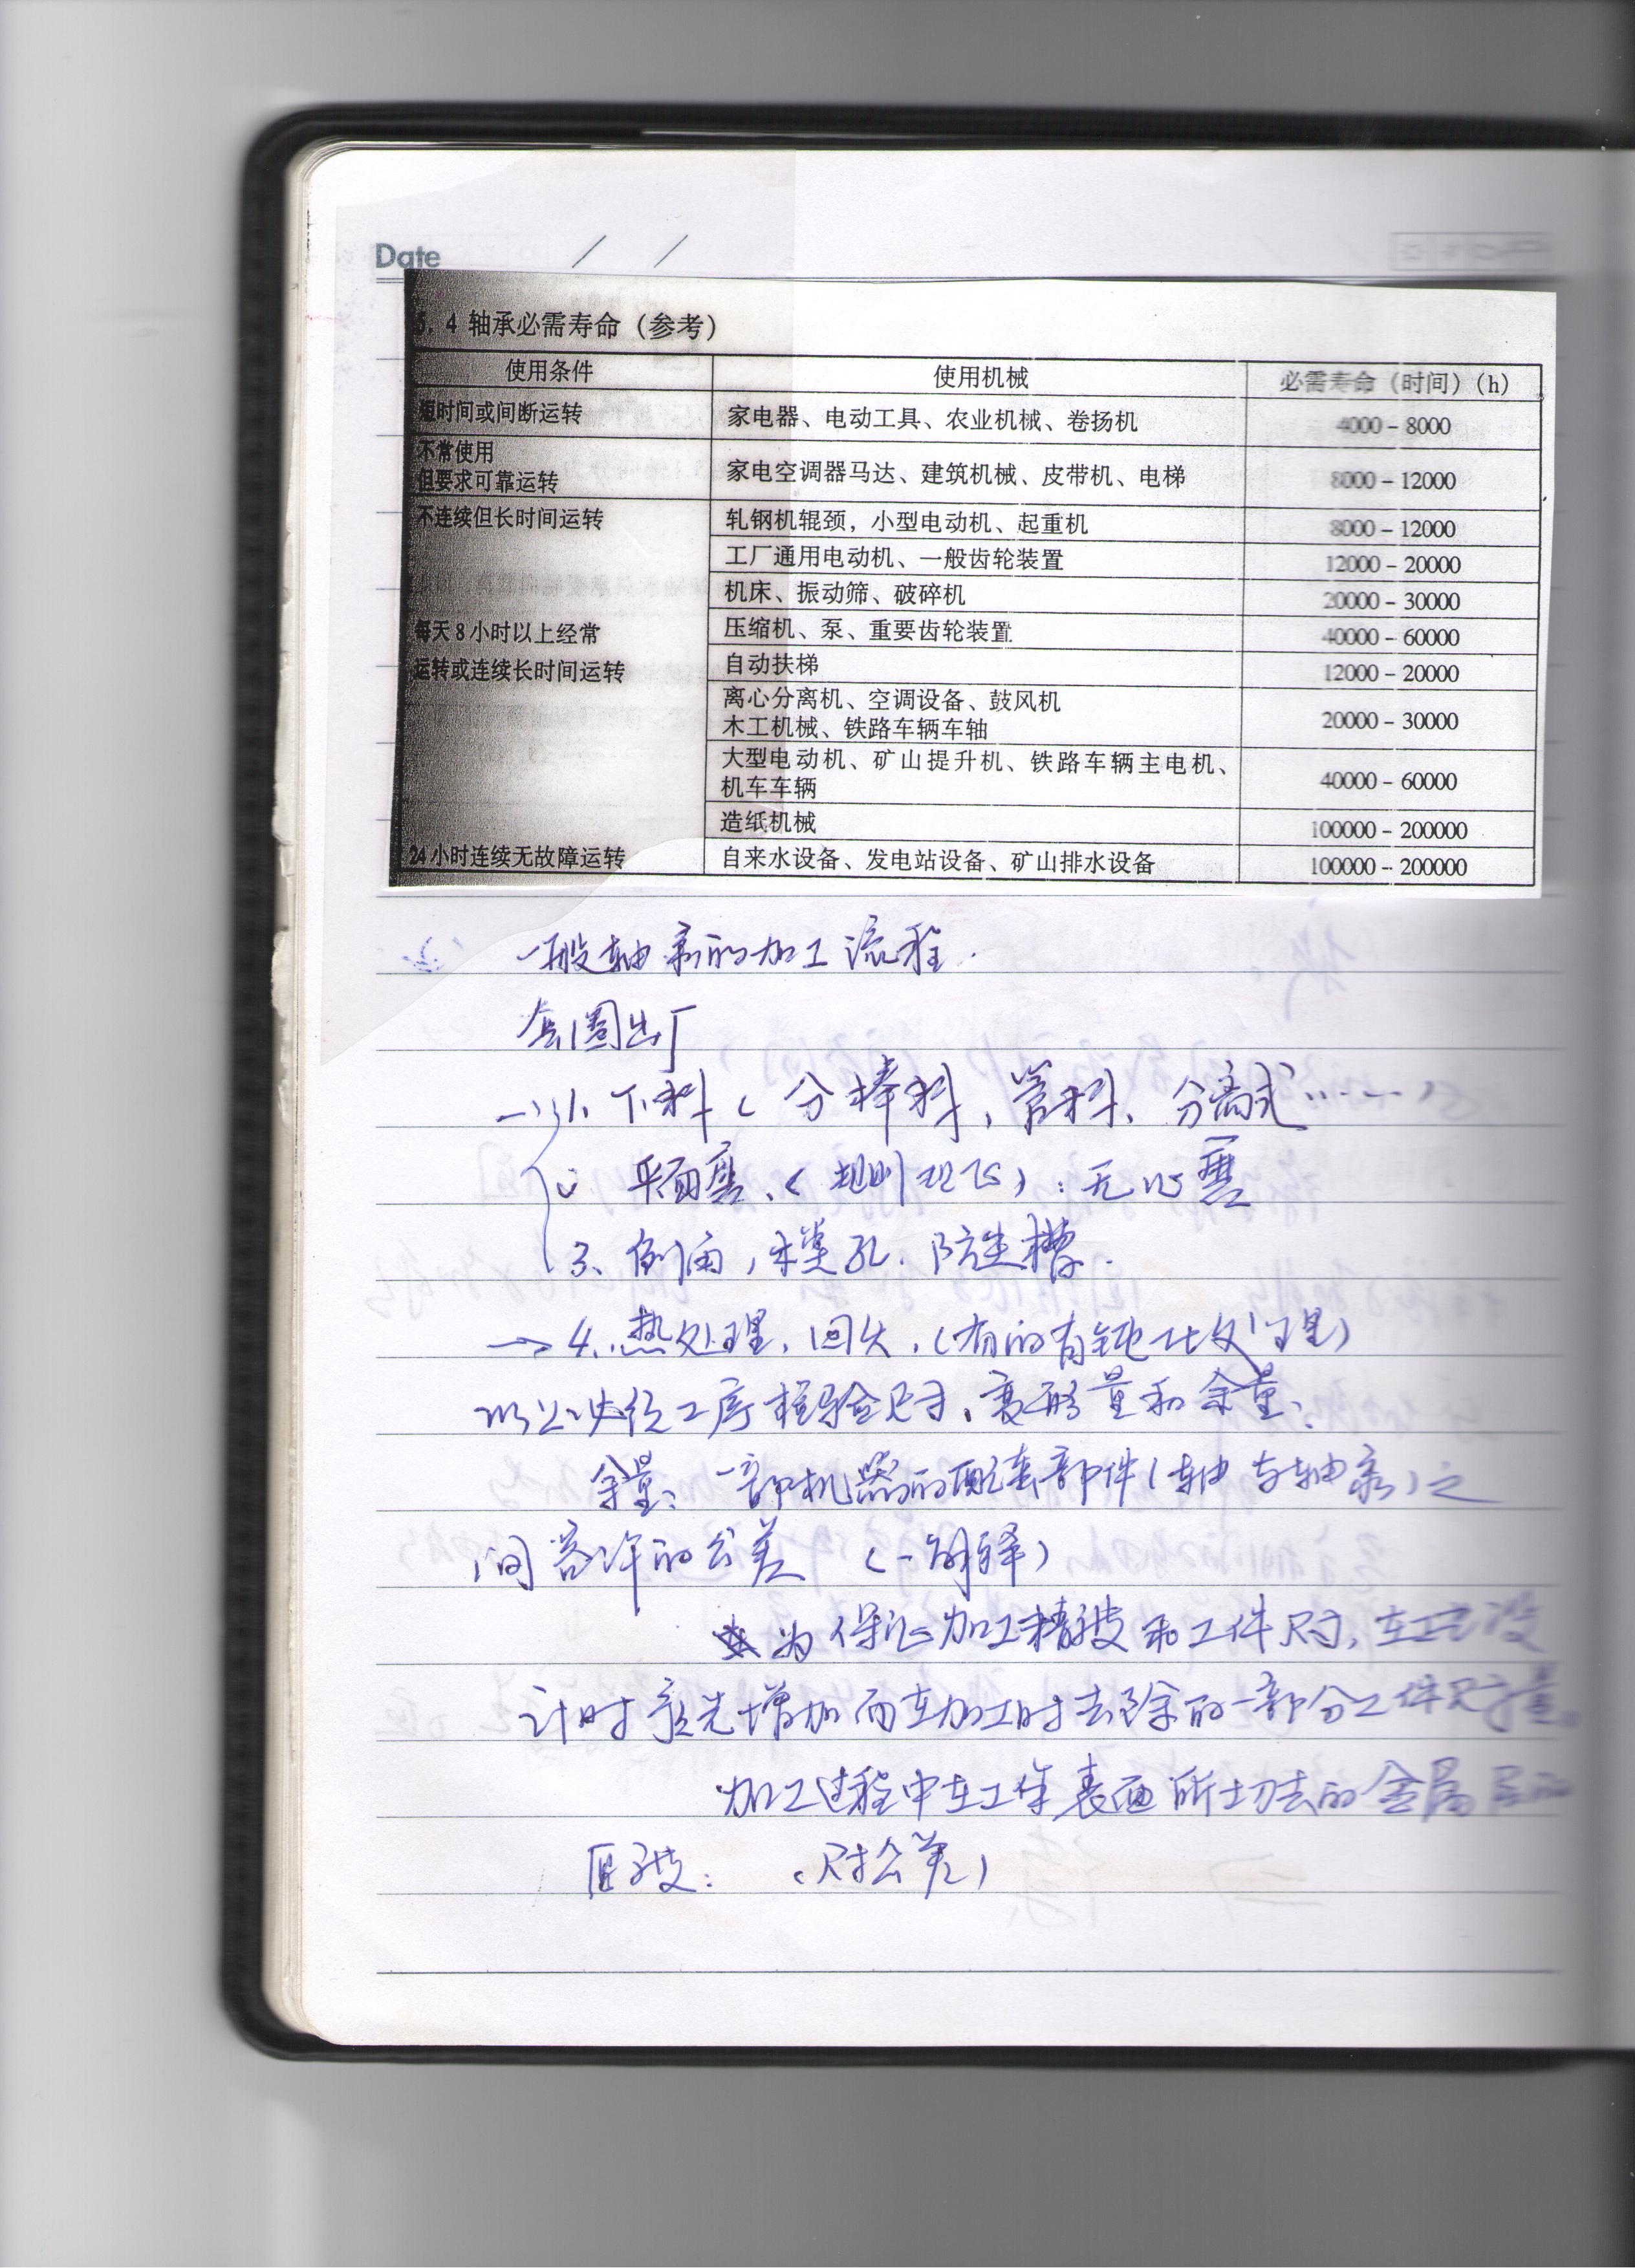 Date / /
5.4 轴承必需寿命（参考）
使用条件 使用机械 必需寿命（时间）(h)
短时间或间断运转 家电器、电动工具、农业机械、卷扬机 4000－8000
不常使用
但要求可靠运转 家电空调器马达、建筑机械、皮带机、电梯 8000－12000
不连续但长时间运转 轧钢机辊颈，小型电动机、起重机 8000－12000
工厂通用电动机、一般齿轮装置 12000－20000
机床、振动筛、破碎机 20000－30000
每天8小时以上经常 压缩机、泵、重要齿轮装置 40000－60000
运转或连续长时间运转 自动扶梯 12000－20000
离心分离机、空调设备、鼓风机
木工机械、铁路车辆车轴 20000－30000
大型电动机、矿山提升机、铁路车辆主电机、
机车车辆 40000－60000
造纸机械 100000－200000
24小时连续无故障运转 自来水设备、发电站设备、矿山排水设备 100000－200000
一般轴承的加工流程.
套圈出厂
1、下料（分棒料、管料、分离式……）
平面磨、 ：无心磨
3、倒角， 孔. 防尘槽.
→4、热处理，回火，（有的有钝化处理）
以上 工序检验尺寸、变形量和余量.
余量：一部机器的配套部件（轴与轴承）之
间容许的公差 （一 解释）
为保证加工精度和工件尺寸，在工艺设
计时预先增加而在加工时去除的一部分工件尺寸量。
加工过程中在工件表面所切去的金属层的
厚度： （尺寸公差）